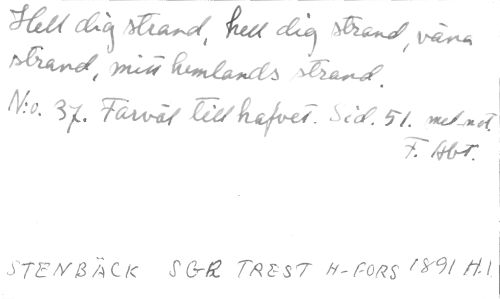 Hell dig strand, hell dig strand, våra
strand, mitt hemlands strand.
N:o. 37. Farväl till hafvet. Sid. 51. med not.
F. Abt.
STENBÄCK SGR TREST H-FORS 1891 H.1